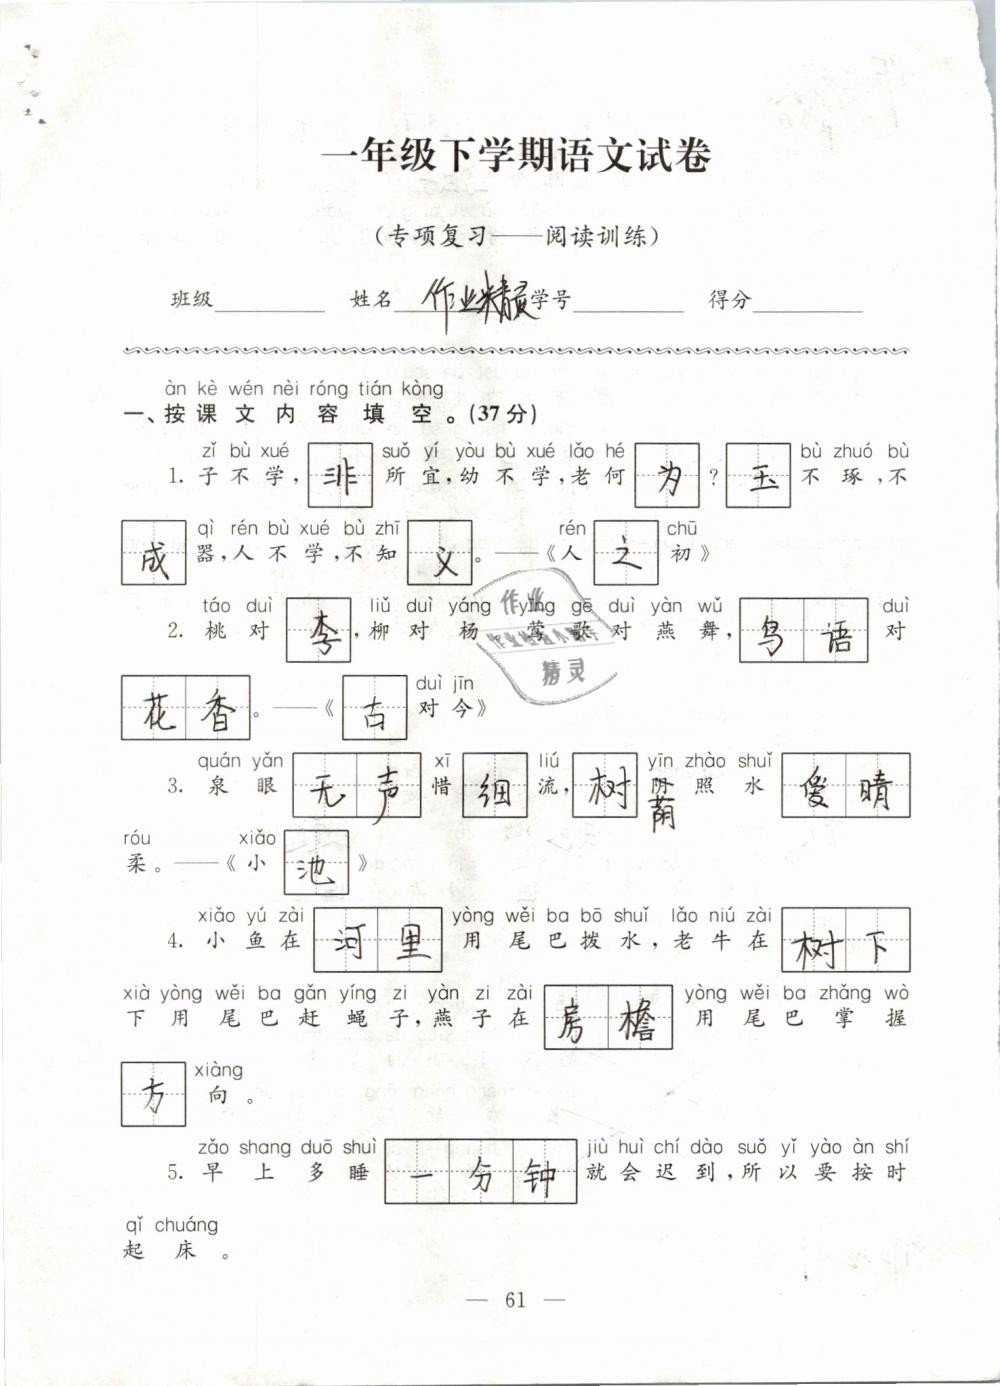 一年级下学期语文试卷
(专项复习——阅读训练)
班级 姓名 作业精灵 学号 得分
àn kè wén nèi róng tián kòng
一、按课文内容填空。(37分)
zǐ bù xué suǒ yí yòu bù xué lǎo hé bù zhuó bù
1. 子不学,非所宜,幼不学,老何为?玉不琢,不
qì rén bù xué bù zhī rén chū
成器,人不学,不知义。——《人之初》
táo duì liǔ duì yáng yīng gē duì yàn wǔ duì
2. 桃对李,柳对杨 莺歌对燕舞,鸟语对
duì jīn
花香。——《古对今》
quán yǎn xī liú yīn zhào shuǐ
3. 泉眼无声惜细流,树阴荫照水爱晴
róu xiǎo
柔。——《小池》
xiǎo yú zài yòng wěi ba bō shuǐ lǎo niú zài
4. 小鱼在河里用尾巴拨水,老牛在树下
xià yòng wěi ba gǎn yíng zi yàn zi zài yòng wěi ba zhǎng wò
下用尾巴赶蝇子,燕子在房檐用尾巴掌握
xiàng
方向。
zǎo shang duō shuì jiù huì chí dào suǒ yǐ yào àn shí
5. 早上多睡一分钟就会迟到,所以要按时
qǐ chuáng
起床。
作业
作业检查小帮手
精灵
— 61 —